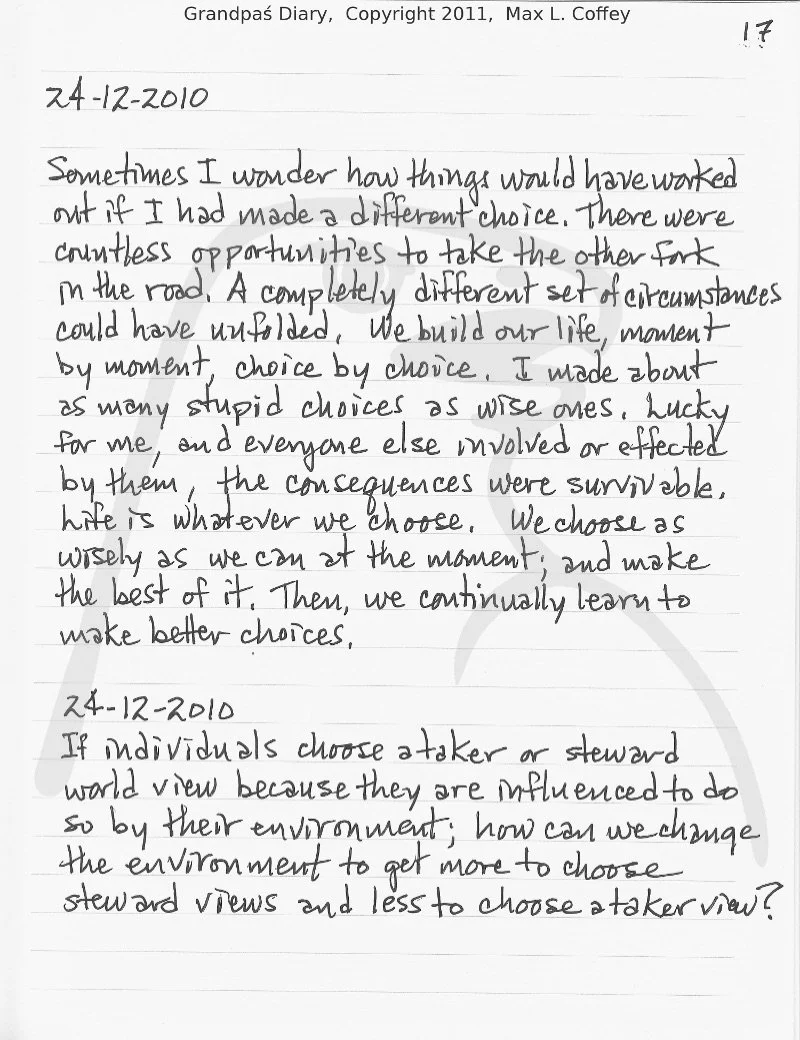 Grandpaś Diary, Copyright 2011, Max L. Coffey
17
24-12-2010
Sometimes I wonder how things would have worked
out if I had made a different choice. There were
countless opportunities to take the other fork
in the road. A completely different set of circumstances
could have unfolded. We build our life, moment
by moment, choice by choice. I made about
as many stupid choices as wise ones. Lucky
for me, and everyone else involved or effected
by them, the consequences were survivable.
Life is whatever we choose. We choose as
wisely as we can at the moment; and make
the best of it. Then, we continually learn to
make better choices.
24-12-2010
If individuals choose a taker or steward
world view because they are influenced to do
so by their environment; how can we change
the environment to get more to choose
steward views and less to choose a taker view?